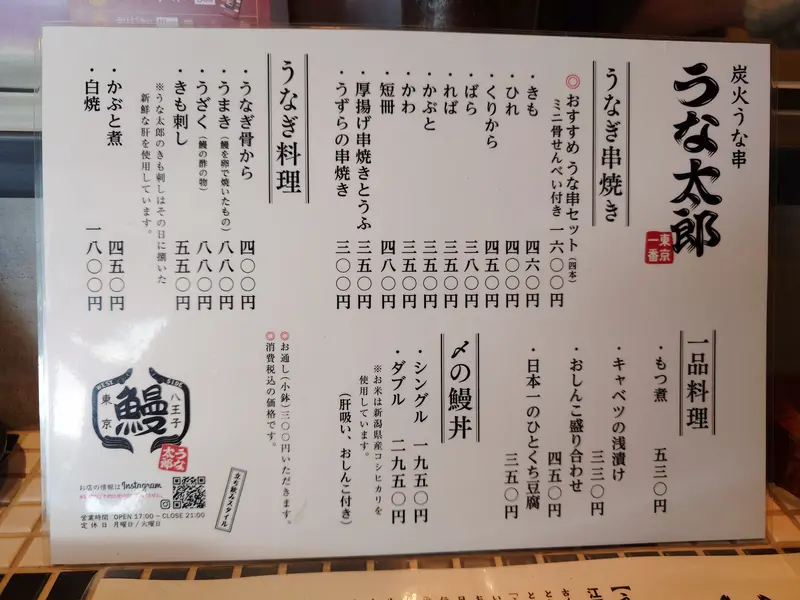 炭火うな串
うな太郎
東京一番
うなぎ串焼き
◎おすすめ うな串セット(四本)
ミニ骨せんべい付き 一六〇〇円
・きも 四六〇円
・ひれ 四〇〇円
・くりから 四五〇円
・ばら 三八〇円
・れば 三五〇円
・かぶと 三五〇円
・かわ 三五〇円
・短冊 四八〇円
・厚揚げ串焼きとうふ 三五〇円
・うずらの串焼き 三〇〇円
うなぎ料理
・うなぎ骨から 四〇〇円
・うまき(鰻を卵で焼いたもの) 八八〇円
・うざく(鰻の酢の物) 八八〇円
・きも刺し 五五〇円
※うな太郎のきも刺しはその日に捌いた
新鮮な肝を使用しています。
・かぶと煮 四五〇円
・白焼 一八〇〇円
一品料理
・もつ煮 五三〇円
・キャベツの浅漬け
三三〇円
・おしんこ盛り合わせ
四五〇円
・日本一のひとくち豆腐
三五〇円
〆の鰻丼
・シングル 一九五〇円
・ダブル 二九五〇円
※お米は新潟県産コシヒカリを
使用しています。
(肝吸い、おしんこ付き)
◎お通し(小鉢)三〇〇円いただきます。
◎消費税込の価格です。
立ち飲みスタイル
WEST SIDE
八王子
鰻
東京
うな太郎
お店の情報はInstagram
営業時間 OPEN 17:00 ~ CLOSE 21:00
定休日 月曜日/火曜日